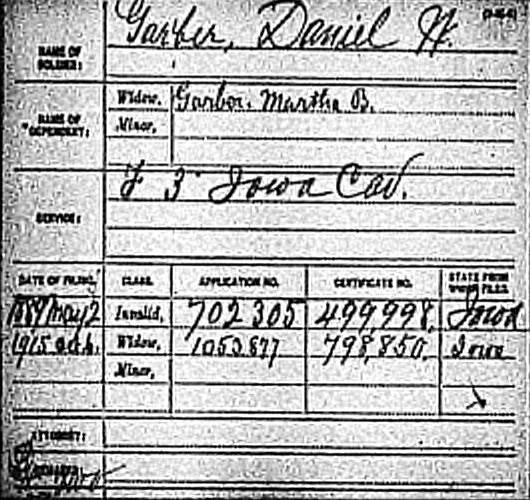 Garber, Daniel H.
NAME OF SOLDIER:
NAME OF DEPENDENT:
Widow, Garber, Martha B.
Minor,
SERVICE: F 3 Iowa Cav.
DATE OF FILING. CLASS. APPLICATION NO. CERTIFICATE NO. STATE FROM WHICH FILED.
1889 May 2 Invalid, 702305 499,998, Iowa
1915 Widow, 1053.877 798,850. Iowa
Minor,
ATTORNEY:
REMARKS: